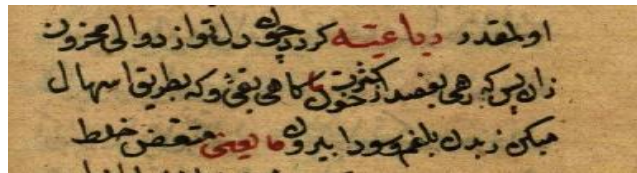 او لمقدر رباعیه کردد چون دل تو از دوالی محزون
زان پس که رهی بفصد اکثرت خون گاهی بقئ و که بطریق اسهال
میکن ز بدن بلغم و سودا بیرون ما یعنی خلط